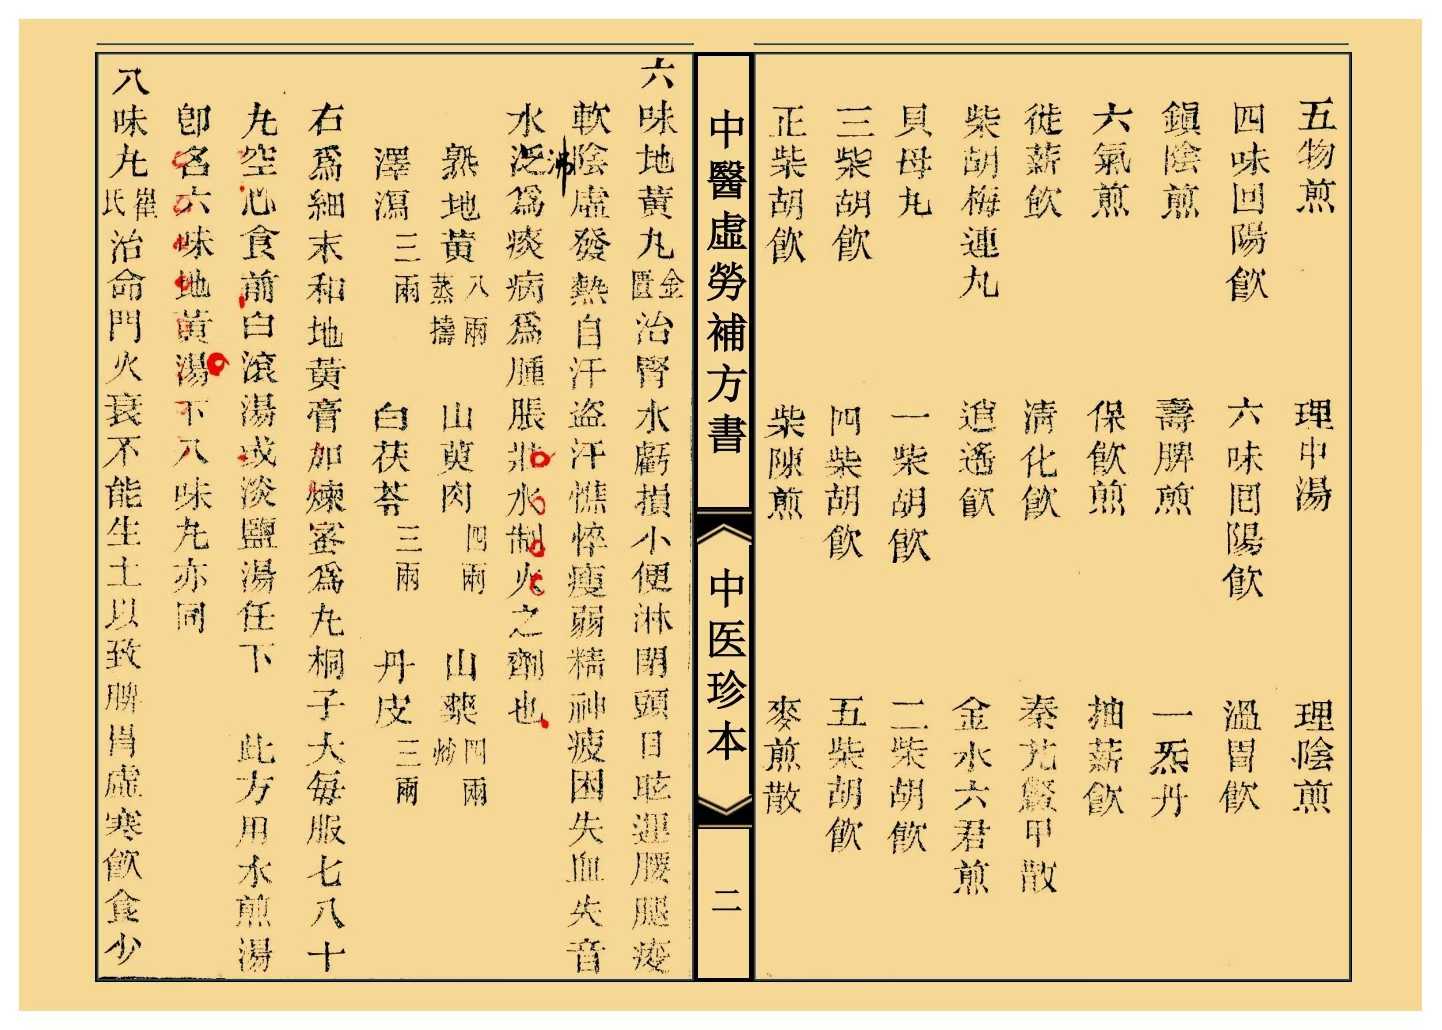 五物煎　理中湯　理陰煎
四味回陽飲　六味回陽飲　溫胃飲
鎭陰煎　壽脾煎　一炁丹
六氣煎　保飲煎　抽薪飲
徙薪飲　淸化飲　秦艽鱉甲散
柴胡梅連丸　逍遙飲　金水六君煎
貝母丸　一柴胡飲　二柴胡飲
三柴胡飲　四柴胡飲　五柴胡飲
正柴胡飲　柴陳煎　麥煎散
中醫虛勞補方書
中医珍本
二
六味地黃丸金匱治腎水虧損小便淋閉頭目眩運腰腿痠
軟陰虛發熱自汗盜汗憔悴瘦弱精神疲困失血失音
水泛爲痰病爲腫脹壯水制火之劑也
沸
熟地黃八兩蒸擣　山萸肉四兩　山藥四兩炒
澤瀉三兩　白茯苓三兩　丹皮三兩
右爲細末和地黃膏加煉蜜爲丸桐子大每服七八十
丸空心食前白滾湯或淡鹽湯任下　此方用水煎湯
卽名六味地黃湯下八味丸亦同
八味丸崔氏治命門火衰不能生土以致脾胃虛寒飮食少